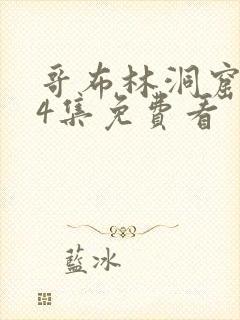 哥布林洞窟
4集免費看
藍冰